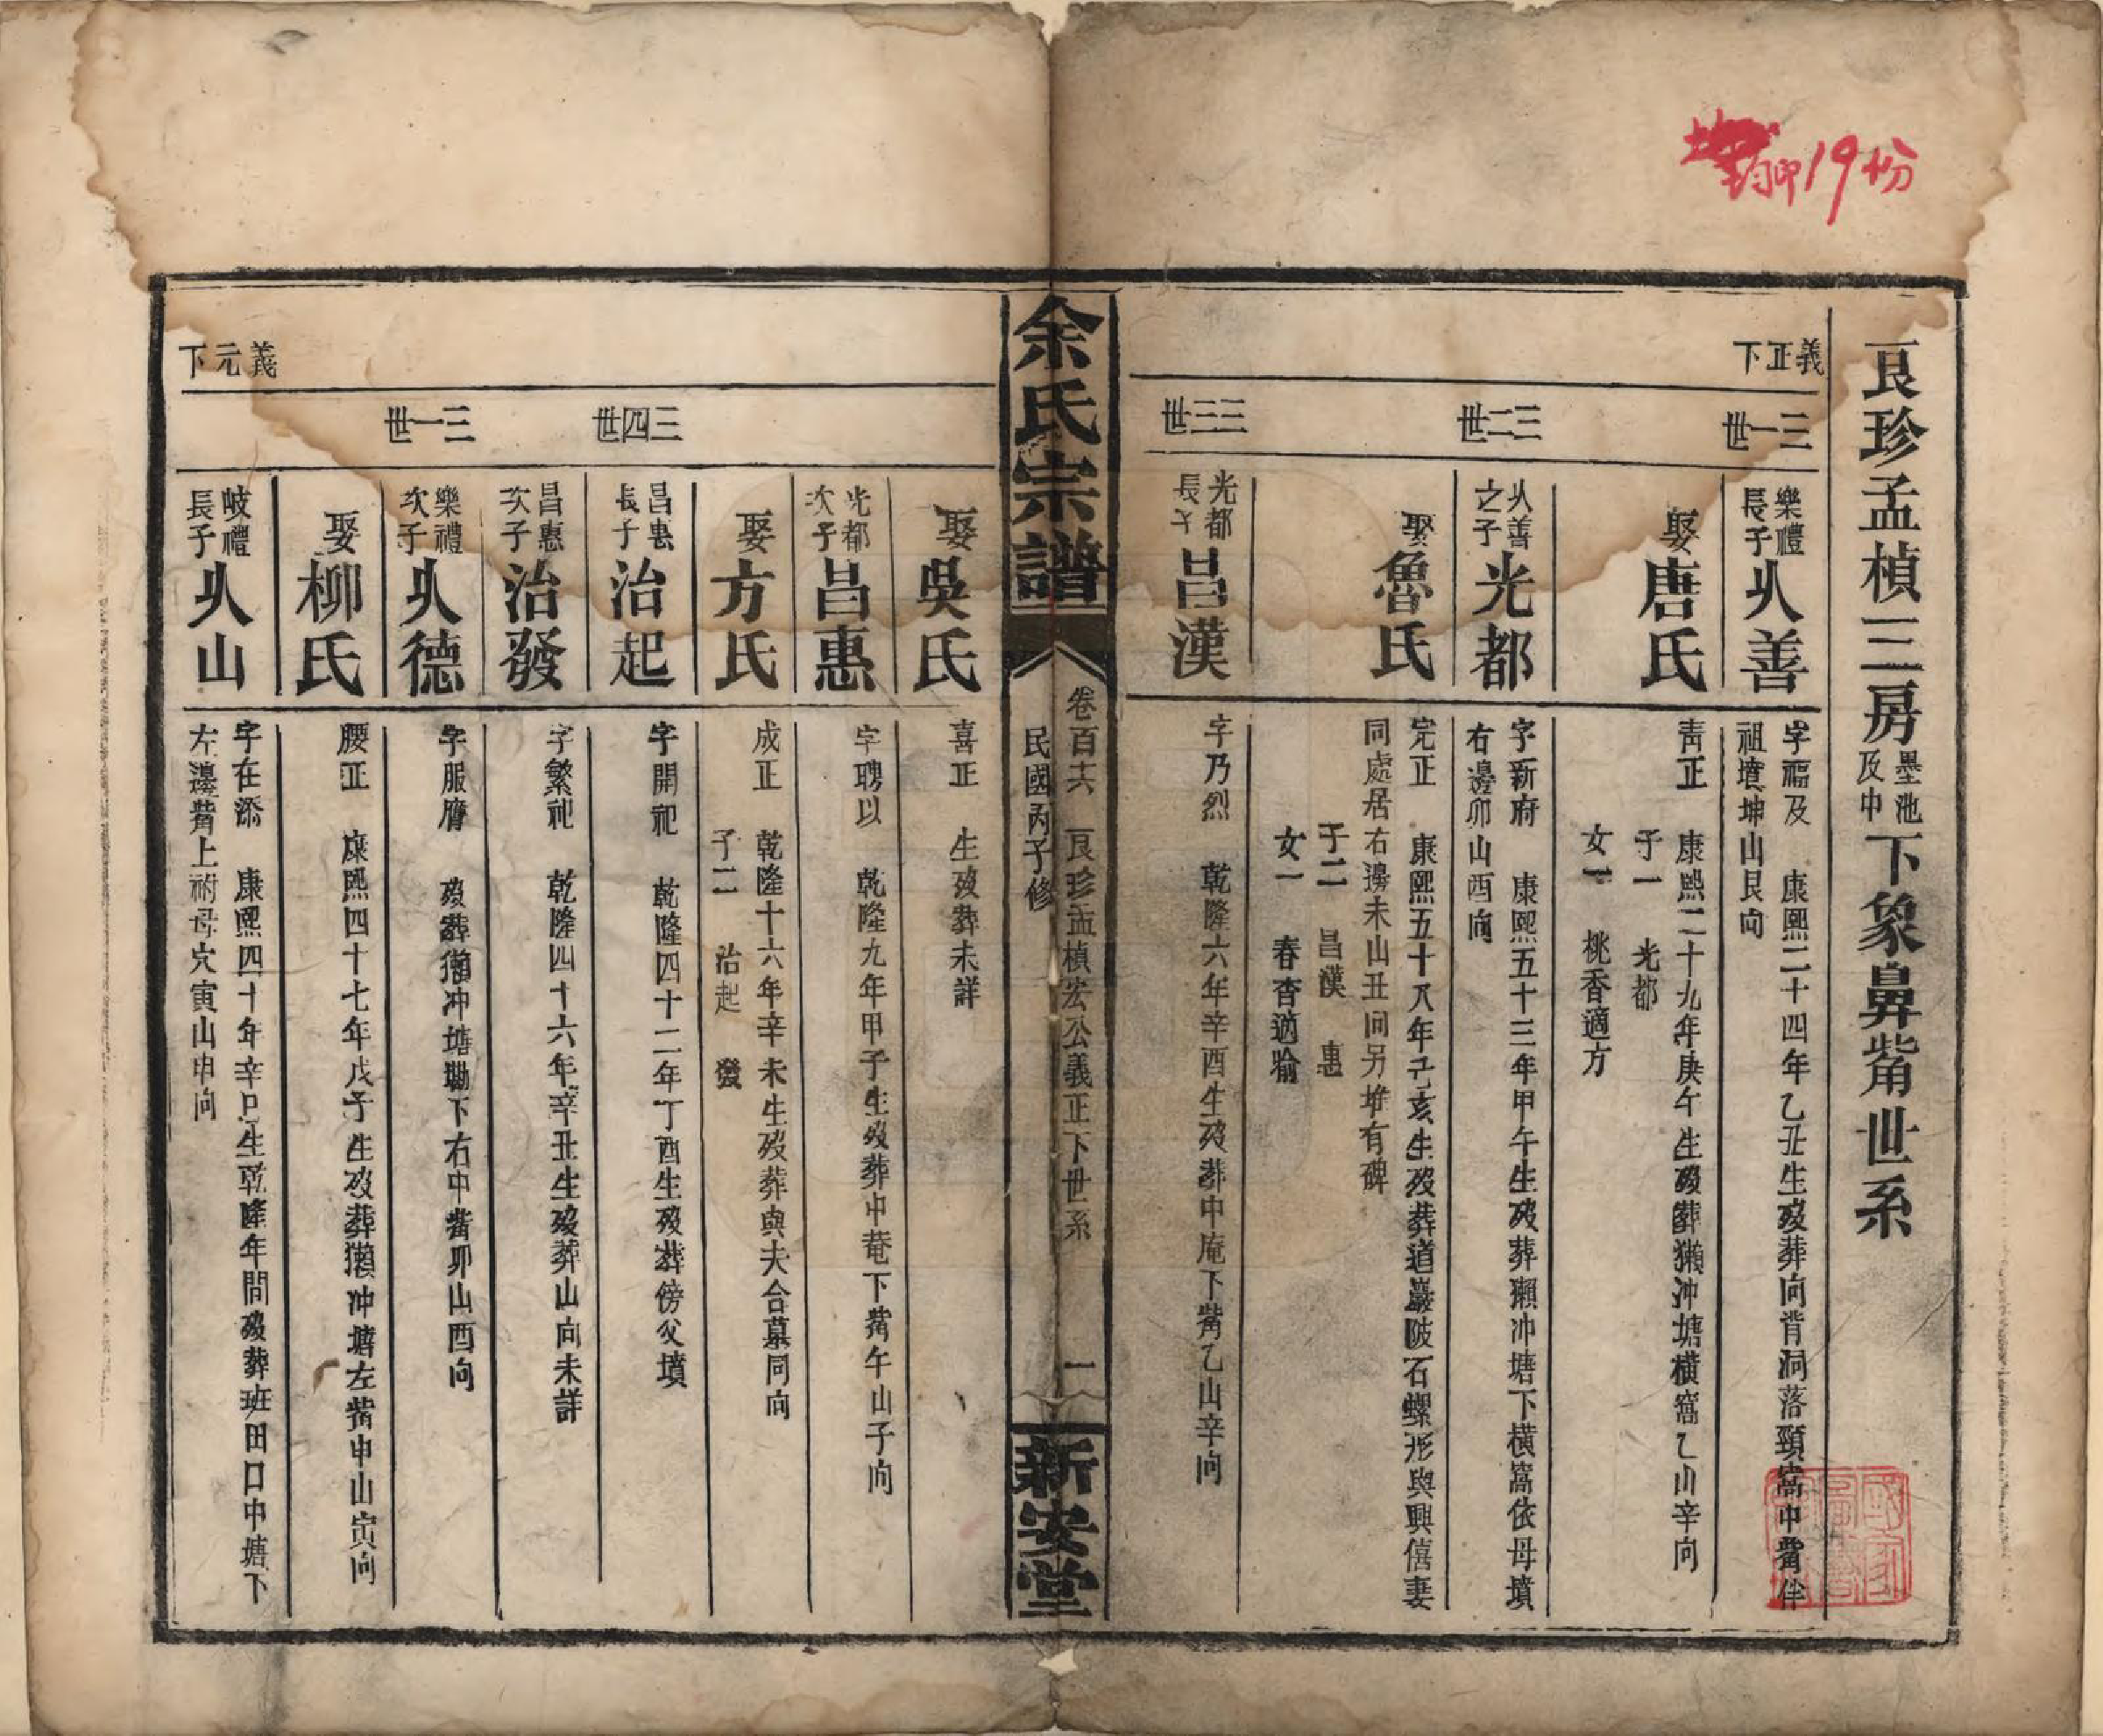 19份
艮珍孟楨三房墨池及中下象鼻觜世系
義正下
三一世
樂禮長子 从善
字福及 康熙二十四年乙丑生歿葬向背洞落頸窩中觜伴
祖墳坤山艮向
娶 唐氏
靑正 康熙二十九年庚午生歿葬獺冲塘橫窩乙山辛向
子一 光都
女一 桃香適方
三二世
从善之子 光都
字新府 康熙五十三年甲午生歿葬獺冲塘下橫窩依母墳
右邊卯山酉向
娶 魯氏
完正 康熙五十八年己亥生歿葬道巖陂石螺形與興僖妻
同處居右邊未山丑向另堆有碑
子二 昌漢 惠
女一 春杳適喻
三三世
光都長子 昌漢
字乃烈 乾隆六年辛酉生歿葬中庵下觜乙山辛向
余氏宗譜
卷百六 艮珍孟楨宏公義正下世系 一
民國丙子修
新安堂
娶 吳氏
喜正 生歿葬未詳
光都次子 昌惠
字聘以 乾隆九年甲子生歿葬中菴下觜午山子向
娶 方氏
成正 乾隆十六年辛未生歿葬與夫合墓同向
子二 治起 發
三四世
昌惠長子 治起
字開祀 乾隆四十二年丁酉生歿葬傍父墳
昌惠次子 治發
字繁祀 乾隆四十六年辛丑生歿葬山向未詳
三一世
樂禮次子 从德
字服膺 歿葬獺冲塘墈下右中觜卯山酉向
娶 柳氏
腰正 康熙四十七年戊子生歿葬獺冲塘左觜申山寅向
義元下
岐禮長子 从山
字在添 康熙四十年辛巳生乾隆年間歿葬班田口中塘下
左邊觜上祔母穴寅山申向